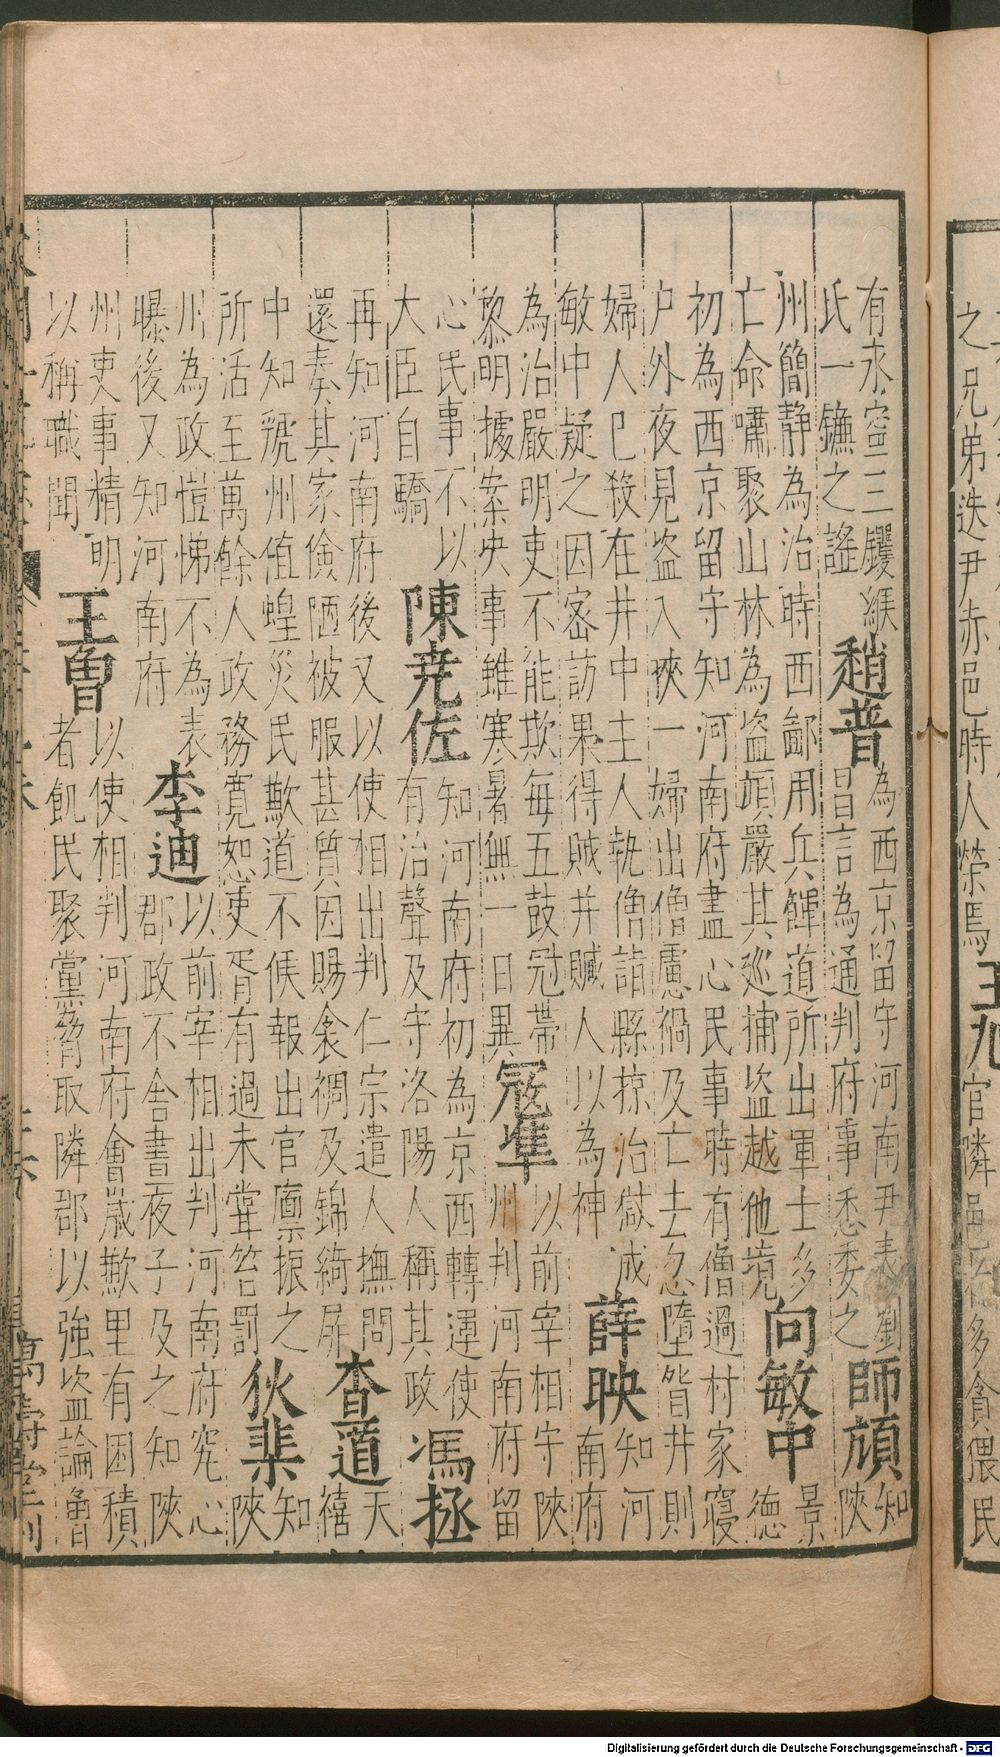 之兄弟迭尹赤邑時人榮焉
王旭
官隣邑
多貪猥民
有永空三钁緱
氏一鐮之謠
趙普
為西京留守河南尹表劉
昌言為通判府事悉委之
師頏
知
陝
州簡静為治時西鄙用兵餫道所出軍士多
亡命嘯聚山林為盗頏嚴其巡捕盗越他境
向敏中
景
德
初為西京留守知河南府盡心民事時有僧過村家寝
户外夜見盗入挾一婦出僧慮禍及亡去忽墮眢井則
婦人已殺在井中主人執僧詣縣掠治獄成
敏中疑之因密訪果得賊并贓人以為神
薛映
知河
南府
為治嚴明吏不能欺每五鼓冠帶
黎明據案央事雖寒暑無一日異
寇凖
以前宰相守陝
州判河南府留
心民事不以
大臣自驕
陳尭佐
知河南府初為京西轉運使
有治聲及守洛陽人稱其政
馮拯
再知河南府後又以使相出判仁宗遣人撫問
還奏其家儉陋被服甚質因賜衾裯及錦綺屏
查道
天
禧
中知虢州值蝗災民歉道不候報出官廪振之
所活至萬餘人政務寛恕吏胥有過未甞笞罰
狄棐
知
陝
州為政愷悌不為表
曝後又知河南府
李迪
以前宰相出判河南府究心
郡政不舍晝夜子及之知陝
州吏事精明
以稱職聞
王曾
以使相判河南府會歲歉里有困積
者飢民聚黨脅取隣郡以強盗論曾
萬壽堂刊
Digitalisierung gefördert durch die Deutsche Forschungsgemeinschaft - DFG